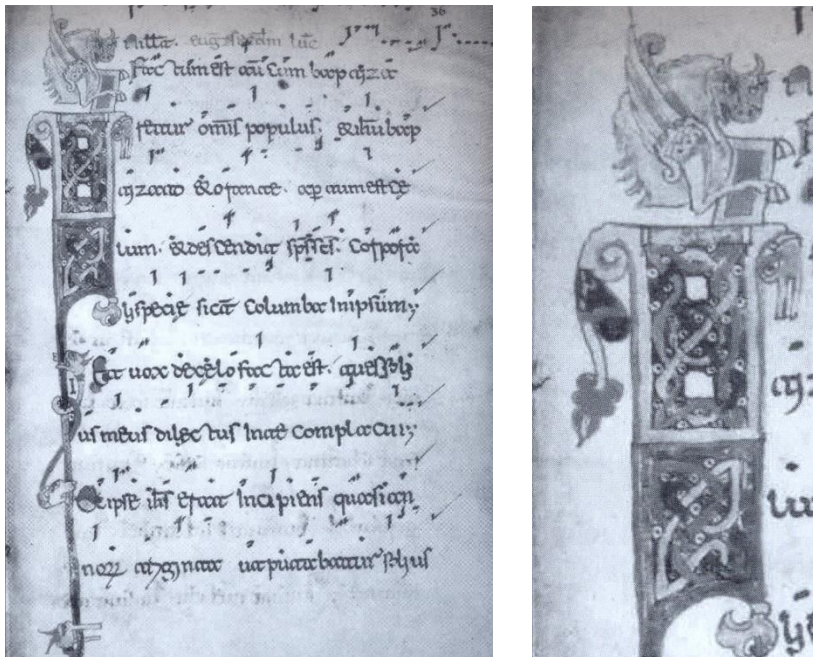 36
Factum est aū cum baptiza
retur om̄is populus. & ihū bap
tizato & orante. apertum est ce
lum. & descendit sp̄s sc̄s. corpora
li specie sicut columba in ipsum;
uox de celo facta est.
us meus dilectus in te complacui
ipse ih̄s erat incipiens quasi an
ut putabatur filius